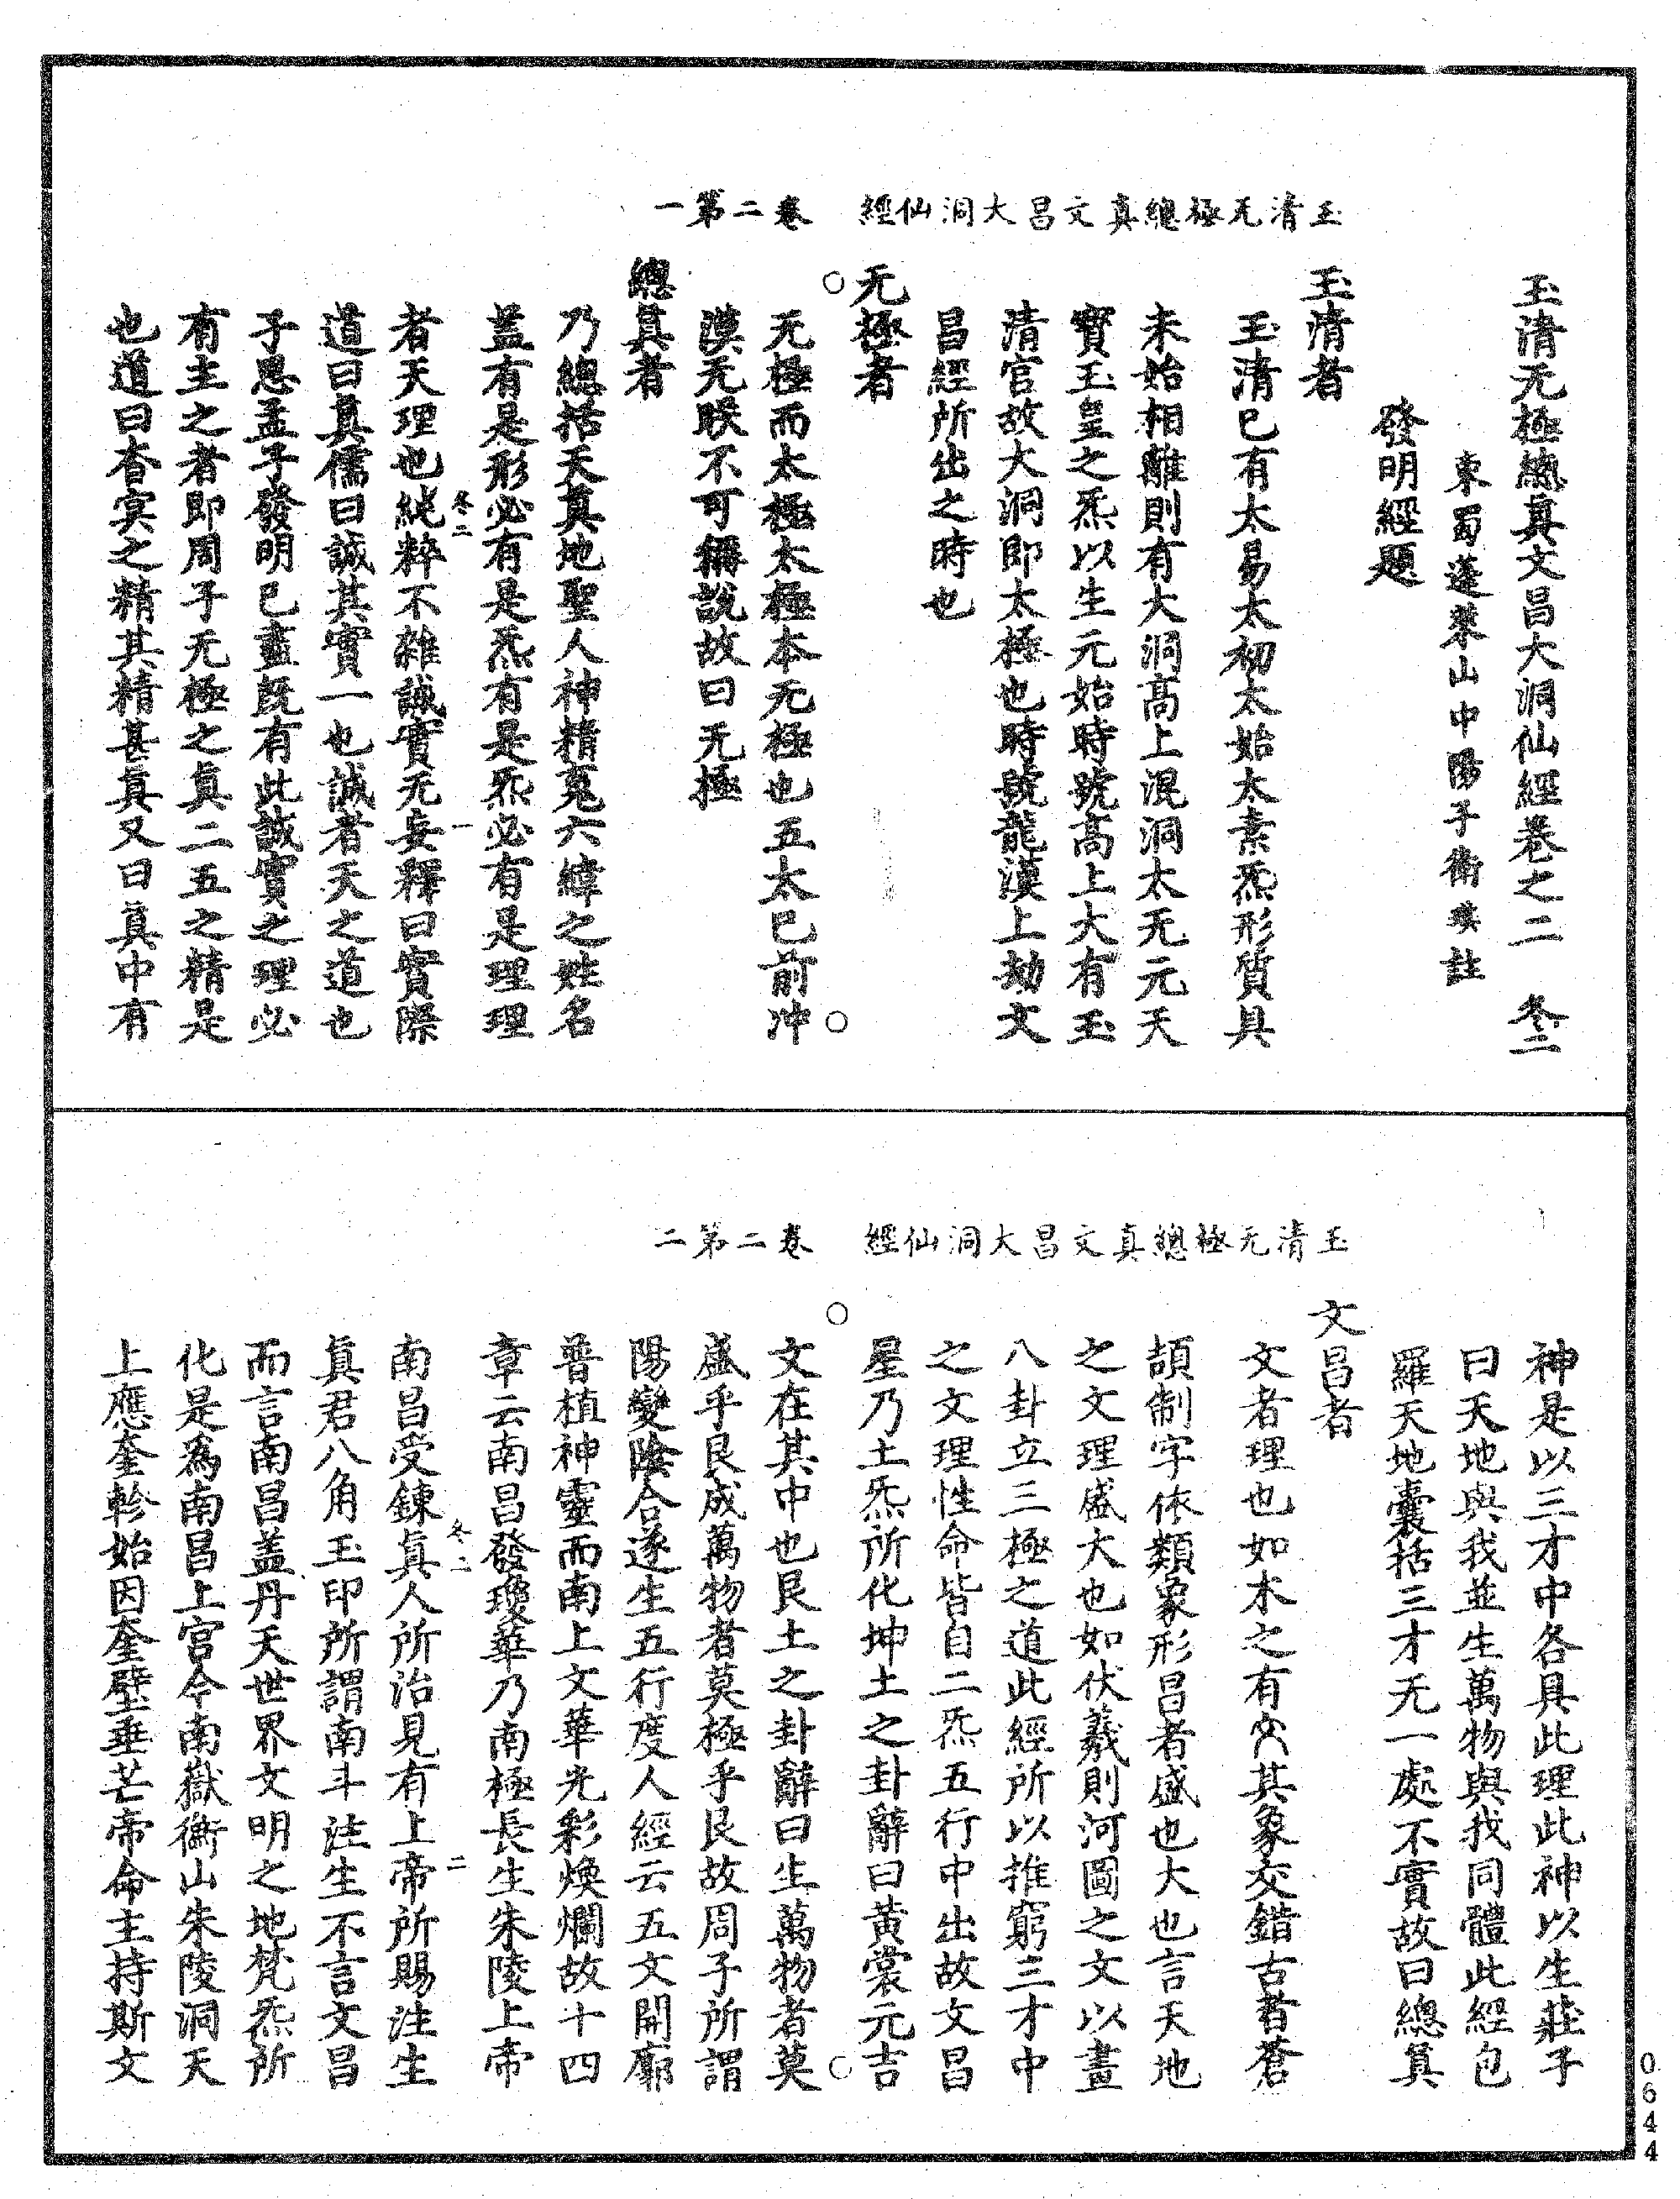 玉清无極總真文昌大洞仙經　卷二第一
玉清无極總真文昌大洞仙經卷之二　冬二
東蜀蓬萊山中陽子衛琪註
發明經題
玉清者
玉清已有太易太初太始太素炁形質具
未始相離則有大洞高上混洞太无元天
寶玉皇之炁以生元始時號高上大有玉
清宫故大洞即太極也時號龍漢上劫文
昌經所出之時也
无極者
无極而太極太極本无極也五太已前冲
漠无朕不可稱說故曰无極
總真者
乃總括天真地聖人神精䰟六緯之姓名
盖有是形必有是炁有是炁必有是理理
冬二　一
者天理也純粹不雜誠實无妄釋曰實際
道曰真儒曰誠其實一也誠者天之道也
子思孟子發明已盡既有此誠實之理必
有主之者即周子无極之真二五之精是
也道曰杳冥之精其精甚真又曰真中有
玉清无極總真文昌大洞仙經　卷二第二
神是以三才中各具此理此神以生莊子
曰天地與我並生萬物與我同體此經包
羅天地囊括三才无一處不實故曰總真
文昌者
文者理也如木之有文其象交錯古者蒼
頡制字依類象形昌者盛也大也言天地
之文理盛大也如伏羲則河圖之文以畫
八卦立三極之道此經所以推窮三才中
之文理性命皆自二炁五行中出故文昌
星乃土炁所化坤土之卦辭曰黃裳元吉
文在其中也艮土之卦辭曰生萬物者莫
盛乎艮成萬物者莫極乎艮故周子所謂
陽變陰合遂生五行度人經云五文開廓
普植神靈而南上文華光彩煥爛故十四
章云南昌發瓊華乃南極長生朱陵上帝
冬二　二
南昌受錬真人所治見有上帝所賜注生
真君八角玉印所謂南斗注生不言文昌
而言南昌盖丹天世界文明之地梵炁所
化是為南昌上宫今南嶽衡山朱陵洞天
上應奎軫始因奎壁垂芒帝命主持斯文
0644